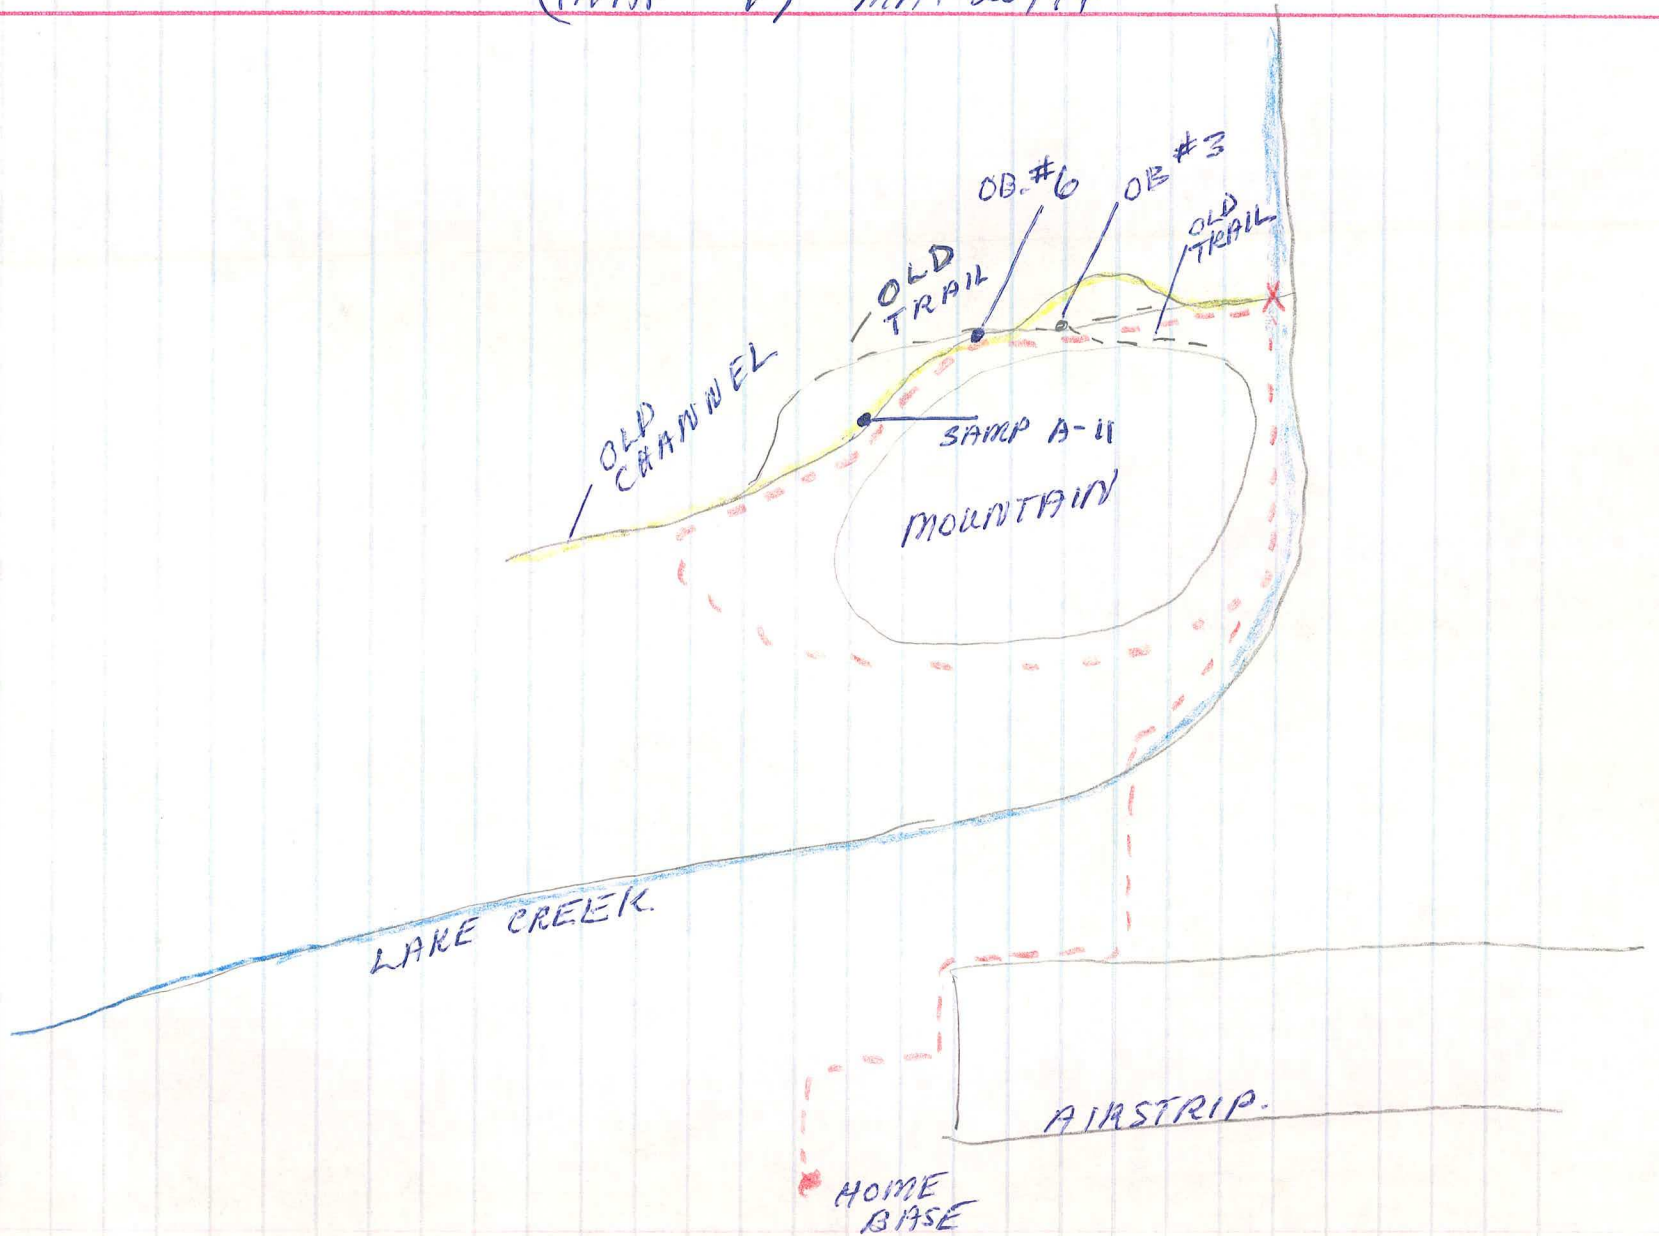 OB #3
OB. #6
OLD
TRAIL
OLD
TRAIL
OLD
CHANNEL
SAMP A-11
MOUNTAIN
LAKE CREEK
AIRSTRIP.
HOME
BASE